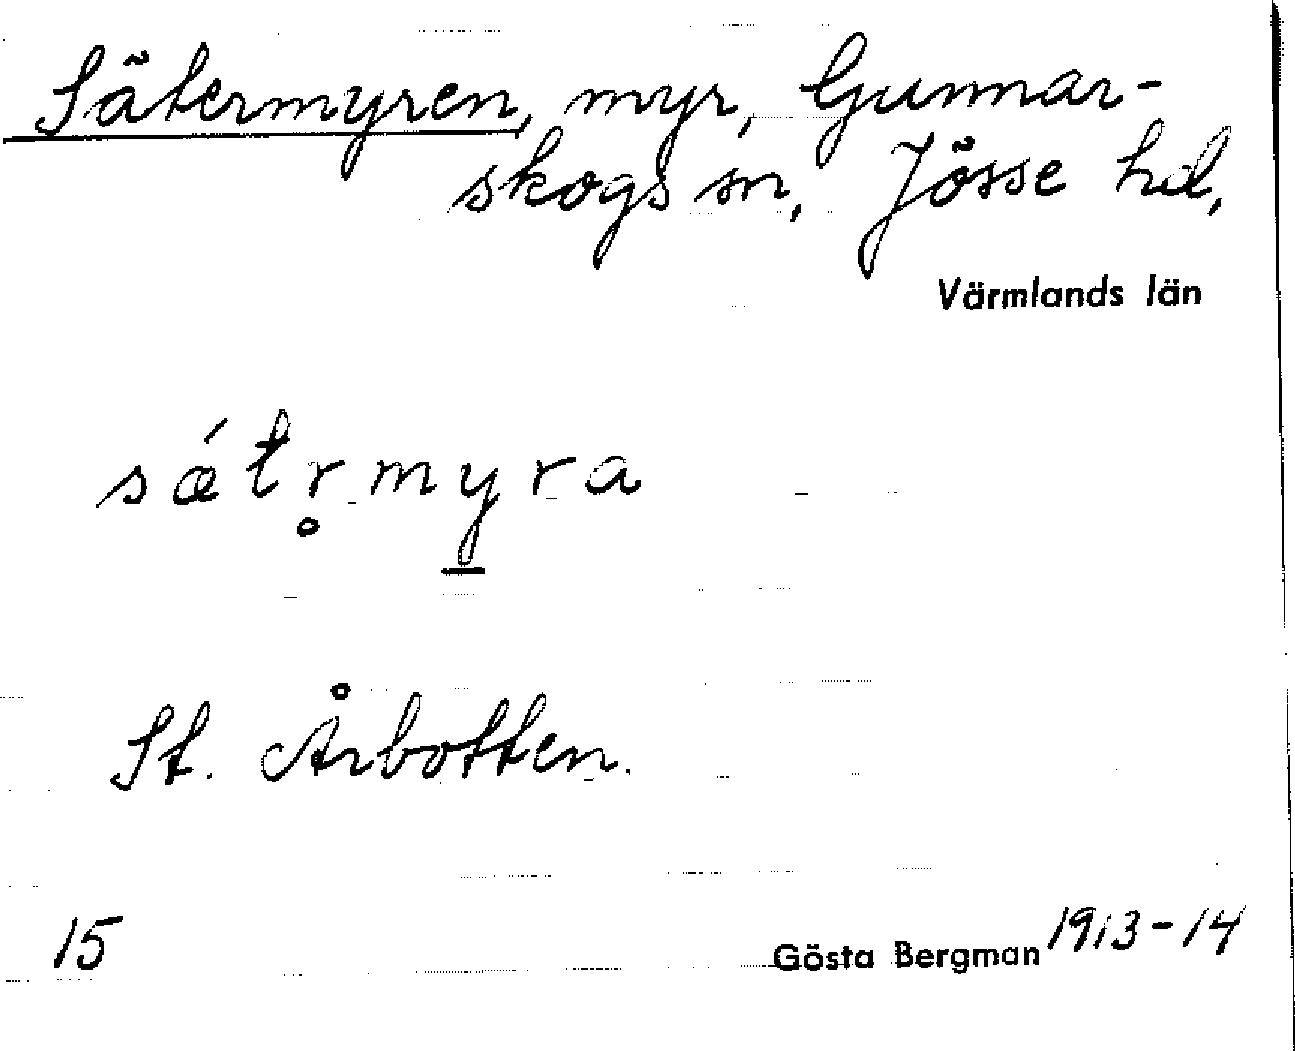 Sätermyren, myr, Gunnar-
skogs sn, Jösse hd,
Värmlands län
sǽtr̥my̲ra
St. Årbotten.
15
Gösta Bergman 1913-14